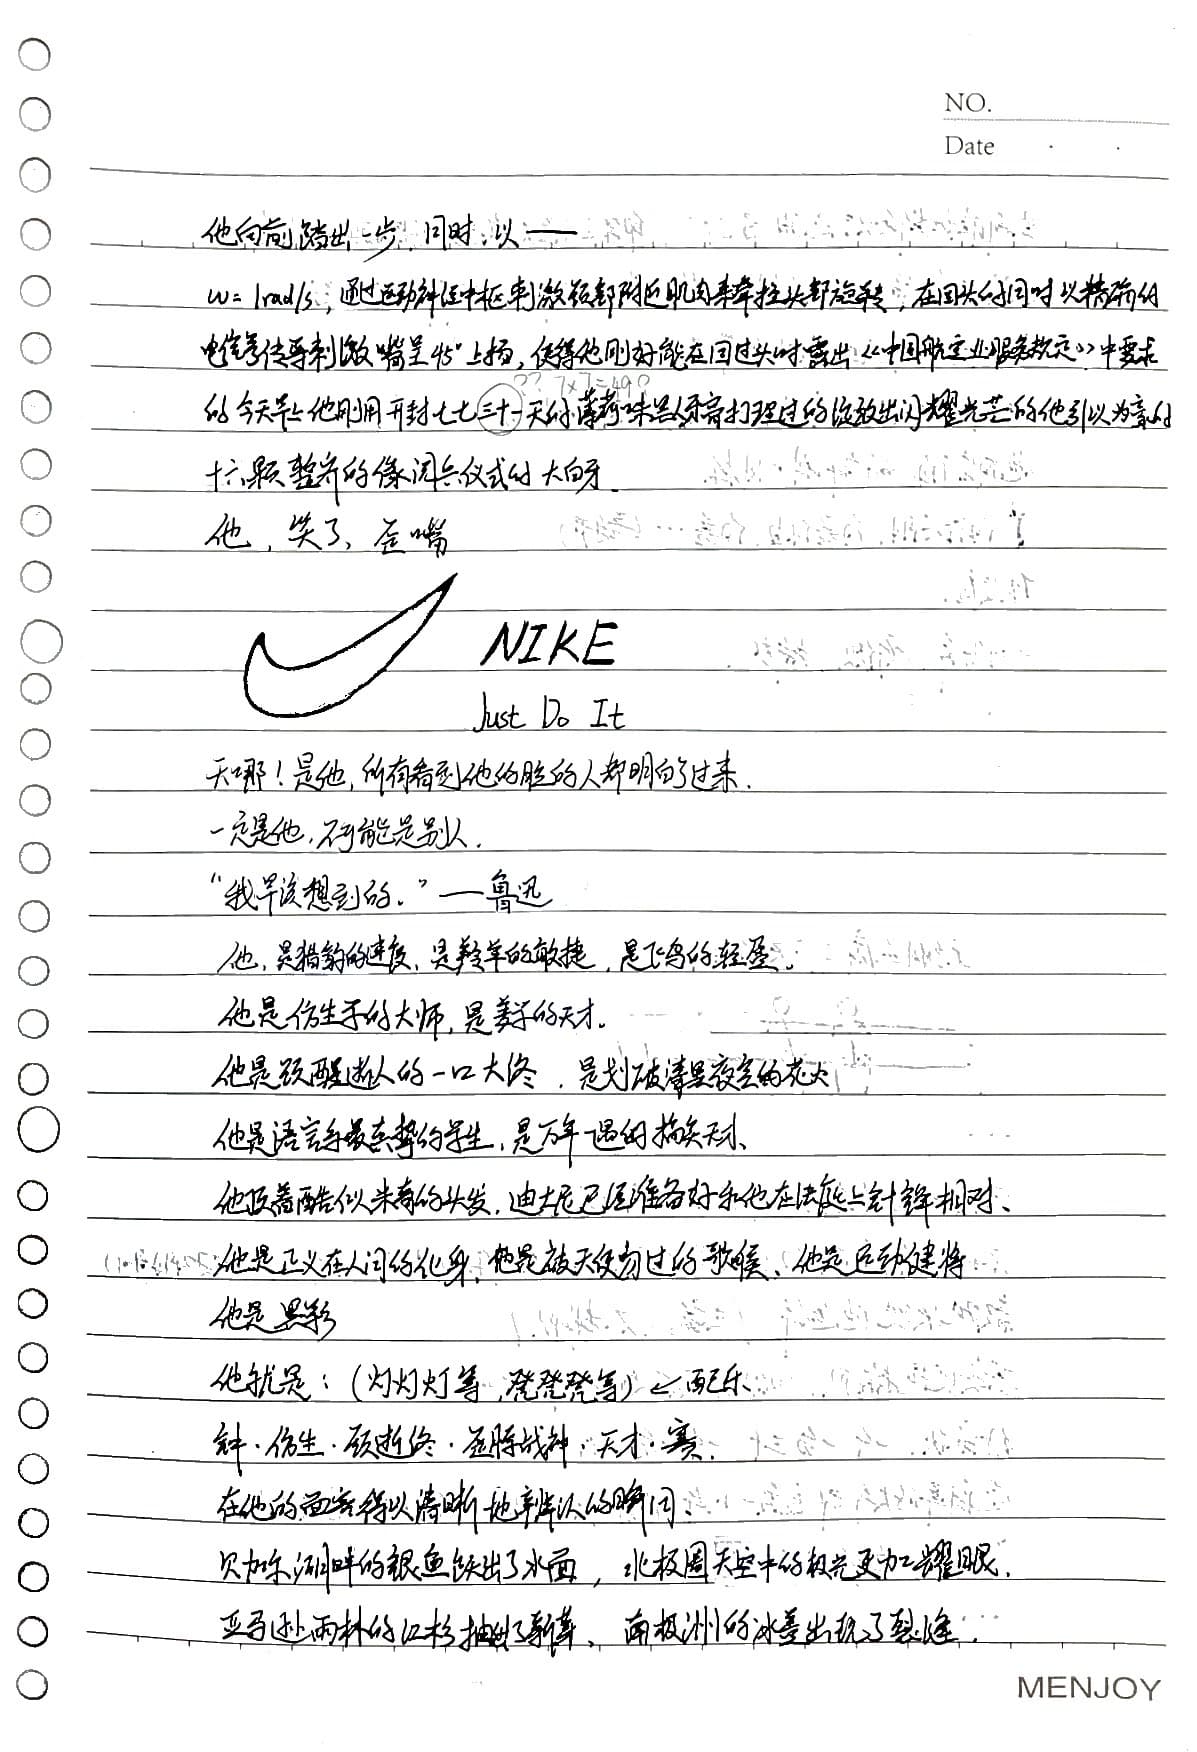 NO.
Date
他向前踏出一步,同时,以——
ω=1rad/s,通过运动神经中枢刺激颈部附近肌肉来牵拉头部旋转,在回头的同时以精确的
电信号传导刺激"嘴呈45°上扬,使得他刚好能在回过头时露出《中国航空业服务规定》中要求
?? 7×7=49?
的今天早上他刚用开封七七三十一天的薄荷味黑人牙膏打理过的绽放出闪耀光芒的他引以为豪的
十六颗整齐的像阅兵仪式的大白牙.
他,笑了、歪嘴
NIKE
Just Do It
天哪!是他,所有看到他的脸的人都明白了过来.
一定是他,不可能是别人.
"我早该想到的."——鲁迅
他,是猎豹的速度,是羚羊的敏捷,是飞鸟的轻盈.
他是仿生学的大师,是美学的天才.
他是颈醒世人的一口大终,是划破漆黑夜空的花火
他是语言学最杰的学生,是万年一遇的搞笑天才、
他顶着酷似米奇的头发,迪士尼已经准备好和他在法庭上针锋相对、
他是正义在人间的化身,他是被天使吻过的歌喉、他是运动健将
他是黑影
他就是:(灯灯灯等,凳凳凳等)←配乐、
钟·仿生·颈逝终·歪脖战神·天才·赛.
在他的面容得以清晰地辨认的瞬间、
贝加尔湖畔的银鱼跃出了水面,北极圈天空中的极光更加耀眼.
亚马逊雨林的红杉抽出了新芽、南极洲的冰盖出现了裂缝.
MENJOY